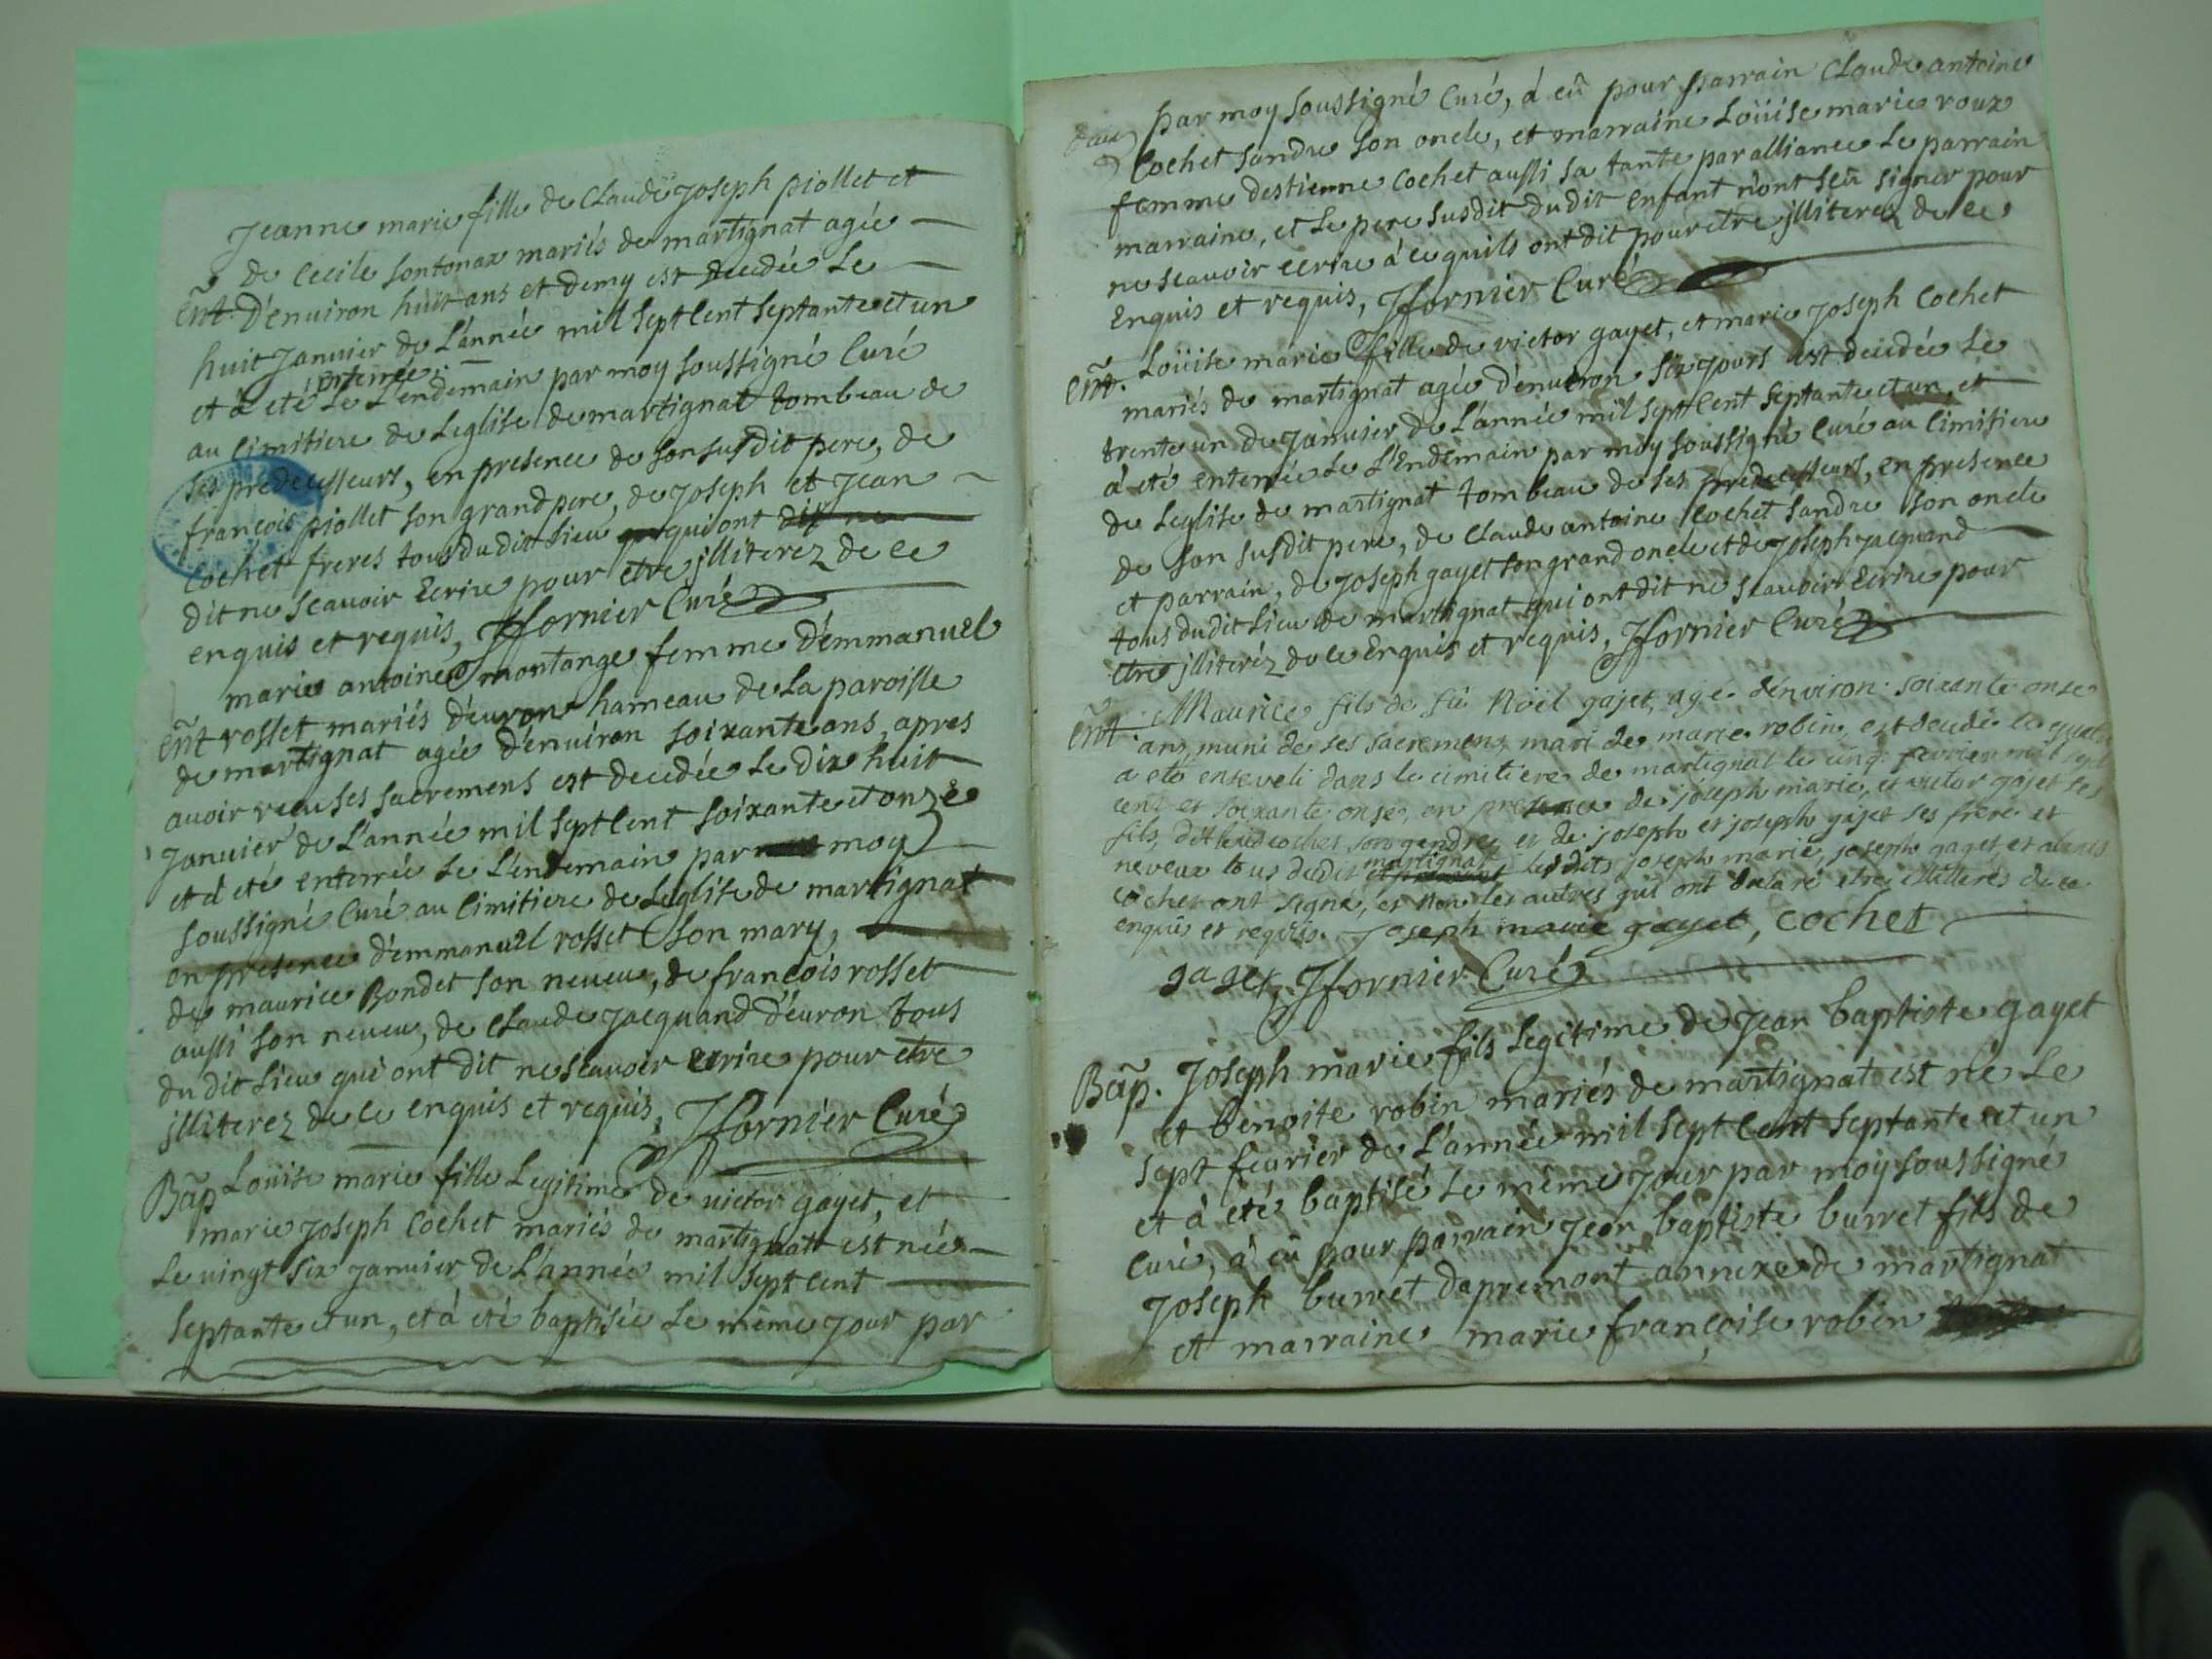 Jeanne marie fille de Claude Joseph piollet et
de Cecile sontonax mariés de martignat agée
Ent. D'enuiron huit ans et demy est decedée Le
huit Januier de L'année mil sept Cent septante et un
et à eté enterrée Le L'endemain par moy soussigné Curé
au Cimitiere de Leglise de martignat tombeau de
ses predecesseurs, en presence de son susdit pere, de
francois piollet son grand pere, de Joseph et Jean
Cochet freres tous du dit Lieu qui ont
dit ne scauoir Ecrire pour etre jlliterez de ce
enquis et requis, Jfornier Curé
marie antoine montange femme D'emmanuel
Ent rosset mariés D'euron hameau de La paroisse
de martignat agée D'enuiron soixante ans, apres
auoir receu ses sacremens est decedée Le Dix huit
Januier de L'année mil sept Cent soixante et onze
et à eté enterrée Le L'endemain par moy
soussigné Curé au Cimitiere de Leglise de martignat
en presence d'emmanuel rosset son mary,
de maurice Bondet son neueu, de francois rosset
aussi son neueu, de Claude Jacquand D'euron tous
du dit Lieu qui ont dit ne scauoir ecrire pour etre
jlliterez de ce enquis et requis, Jfornier Curé
Bap Louise marie fille Legitime de uictor gayet, et
marie Joseph Cochet mariés de martignat est née
Le uingt six Januier de L'année mil sept Cent
septante et un, et à eté baptisée Le même Jour par
par moy soussigné Curé, à eû pour parrain Claude antoine
Cochet sandre son oncle, et marraine Loüise marie roux
femme destienne Cochet aussi sa tante par alliance Le parrain
marraine, et Le pere susdit du dit enfant n'ont sçu signer pour
ne sçauoir ecrire à ce quils ont dit pour etre jlliterez de ce
Enquis et requis, Jfornier Curé
Ent. Loüise marie fille de victor gayet, et marie Joseph Cochet
mariés de martignat agée D'enuiron six jours est decedée Le
trente un de Januier de L'année mil sept Cent septante et un, et
à eté enterrée Le L'Endemain par moy soussigné Curé au Cimitiere
de Leglise de martignat tombeau de ses predecesseurs, en presence
de son susdit pere, de Claude antoine Cochet sandre son oncle
et parrain, de Joseph gayet son grand oncle et de Joseph Jacquand
tous du dit Lieu de martignat qui ont dit ne scauoir Ecrire pour
etre jlliteréz de ce Enquis et requis, Jfornier Curé
Ent. Maurice fils de fû Noël gajet, agé d'environ soixante onse
ans, muni de ses sacremens, mari de marie robin, est decedé le
a eté enseveli dans le cimitiere de martignat le cinq fevrier mil sept
cent et soixante onse, en presence de joseph marie, et victor gajet ses
fils, cochet son gendre, et de joseph et joseph gajet ses frere et
neveux tous dudit martignat lesdits joseph marie, joseph gaget et
cochet ont signé, et non les autres qui ont declaré etre illitterés de ce
enquis et requis. Joseph marie gayet, Cochet
gaget, Jfornier Curé
Bap. Joseph marie fils Legitime de Jean baptiste gayet
et benoite robin mariés de martignat est né Le
sept feurier de L'année mil sept Cent septante et un
et à eté baptisé Le même Jour par moy soussigné
Curé, à eû pour parrain Jean baptiste burret fils de
Joseph burret dapremont annexe de martignat
et marraine marie françoise robin